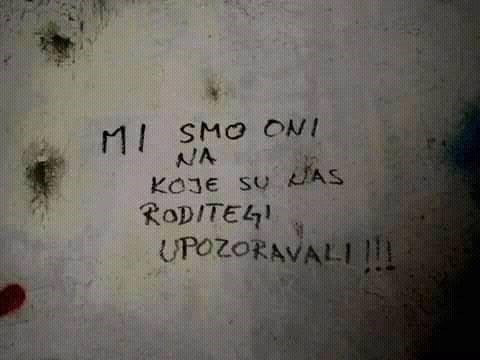 MI SMO ONI
NA
KOJE SU NAS
RODITELJI
UPOZORAVALI!!!